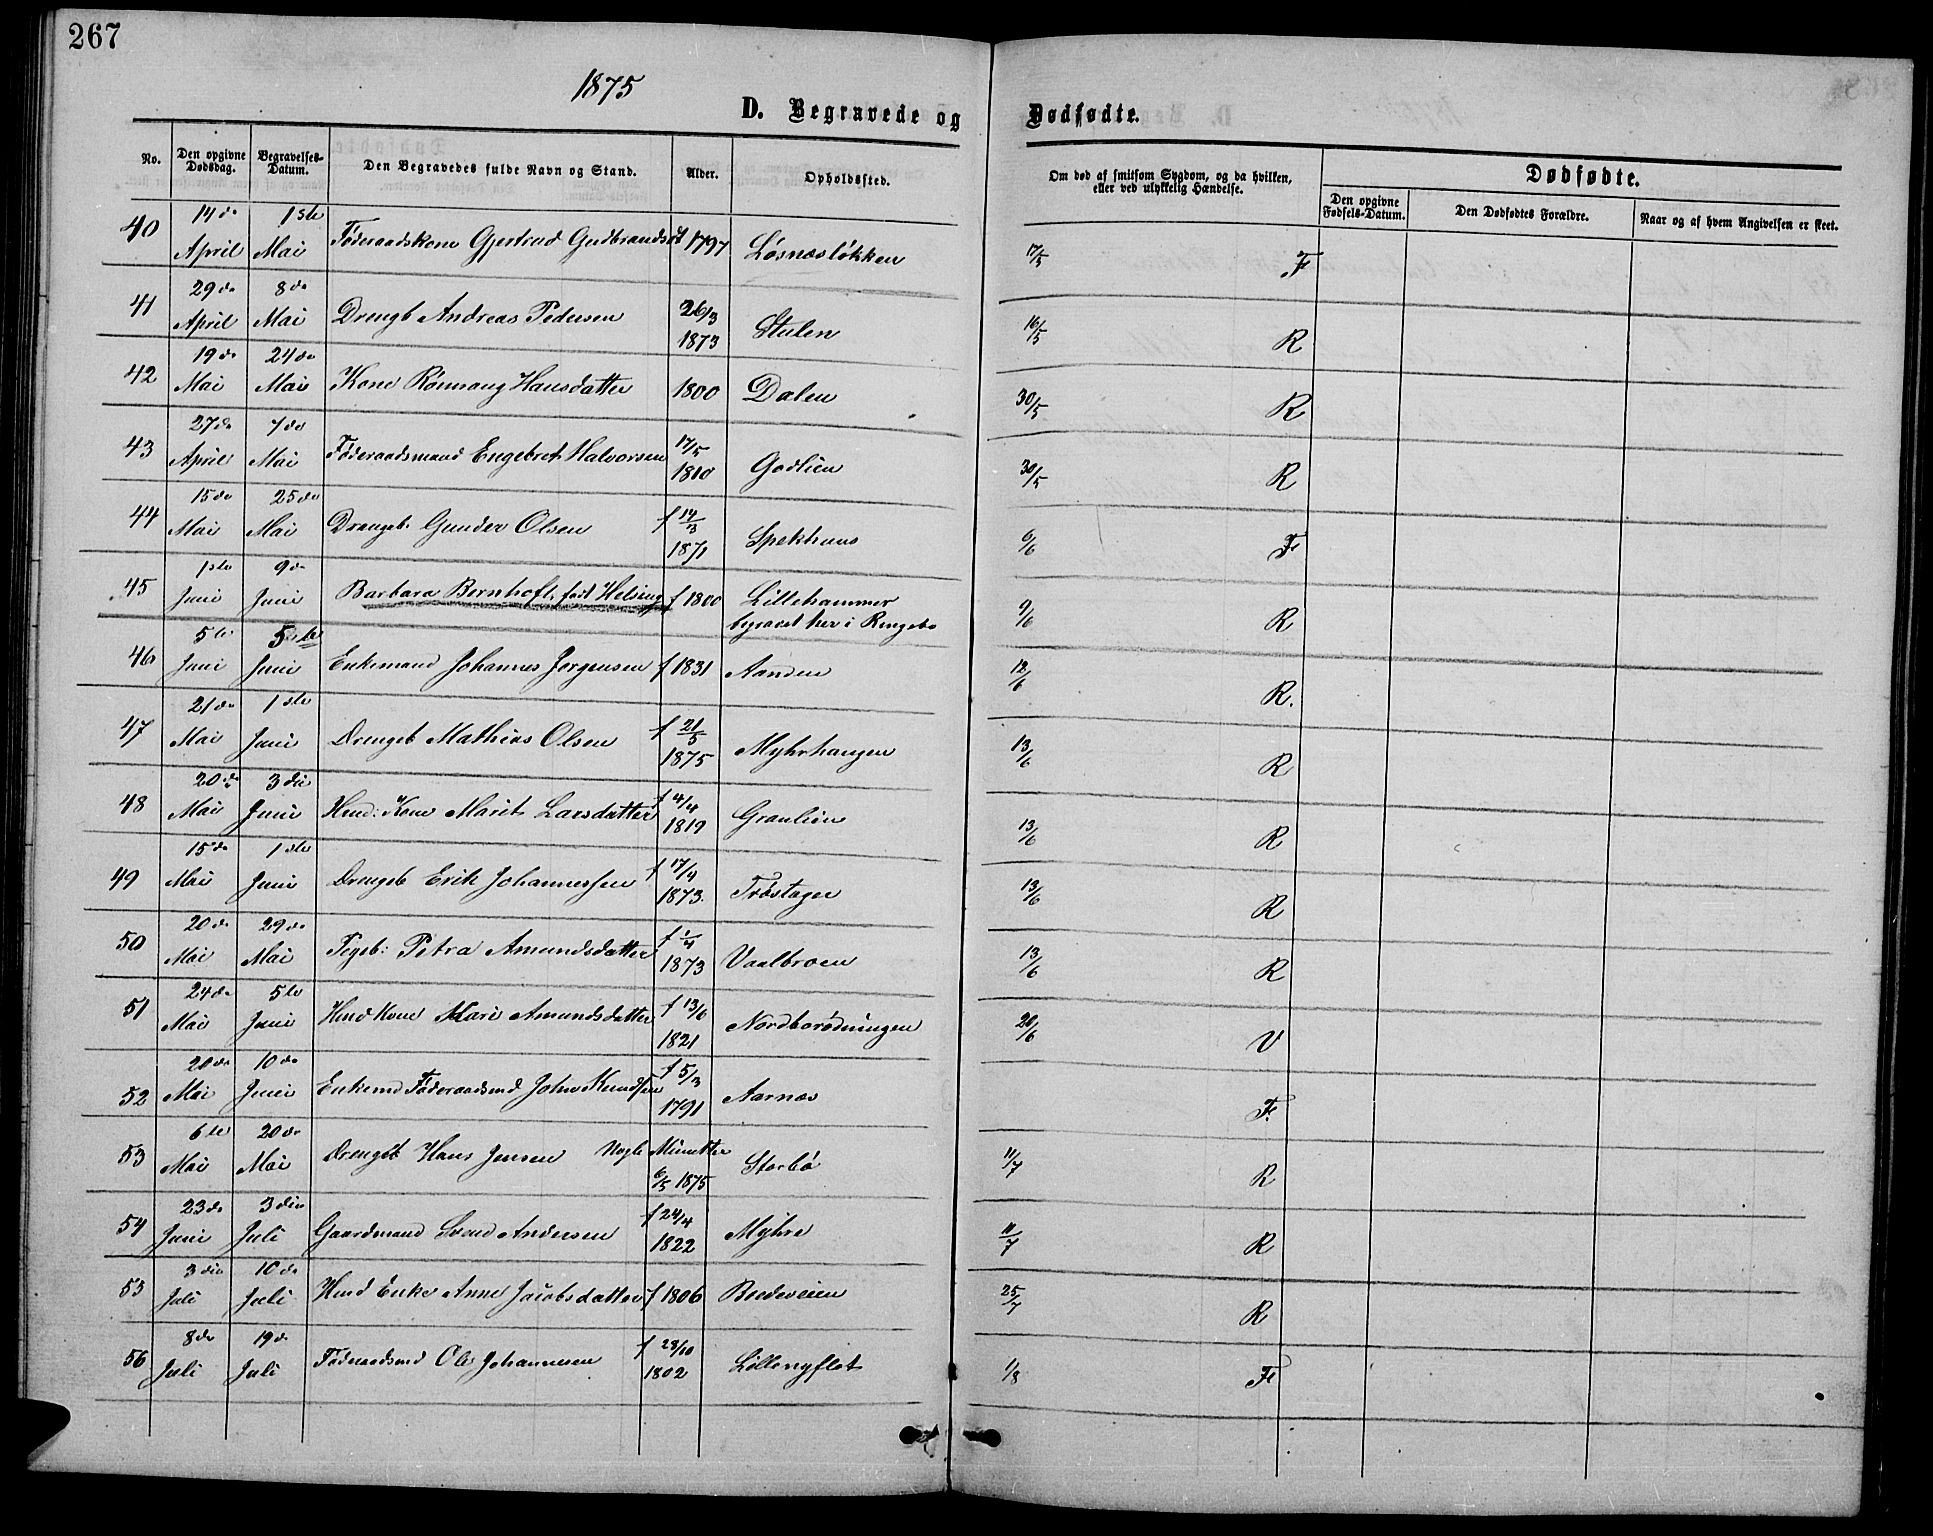 267
1875
D. Begravede og Dødfødte.
No. Den opgivne Dødsdag. Begravelses-Datum. Den Begravedes fulde Navn og Stand. Alder. Opholdssted. Om død af smitsom Sygdom, og da hvilken, eller ved ulykkelig Hændelse. Dødfødte.
Den opgivne Fødsels-Datum. Den Dødfødtes Forældre. Naar og af hvem Angivelsen er skeet.
40 14de April 1ste Mai Føderaadskone Gjertrud Gudbrandsdt 1797 Løsnæsløkken 17/5 F
41 29de April 8de Mai Drengb Andreas Pedersen 26/3 1873 Stulen 16/5 R
42 19de Mai 24de Mai Kone Rønnaug Hansdatter 1800 Dalen 30/5 R
43 27de April 7de Mai Føderaadsmand Engebret Halvorsen 17/5 1810 Godlien 30/5 R
44 15de Mai 25de Mai Drengeb. Gunder Olsen f 14/3 1871 Spekhuus 6/6 F
45 1ste Juni 9de Juni Barbara Bernhoft, født Helsing f 1800 Lillehammer begravet her i Ringebo 9/6 R
46 5te Juni 5te Juni Enkemand Johannes Jørgensen f 1831 Aanden 12/6 R.
47 21de Mai 1ste Juni Drengeb Mathias Olsen f 21/5 1875 Myhrhaugen 13/6 R
48 20de Mai 3die Juni Hmd: Kone Marit Larsdatter f 4/4 1819 Granlien 13/6 R
49 15de Mai 1ste Juni Drengeb Erik Johannessen f 17/4 1873. Trøstagen 13/6 R
50 20de Mai 29de Mai Pigeb: Petra Amundsdatter f 1/4 1873 Vaalbroen 13/6 R
51 24de Mai 5te Juni Hmd Kone Mari Amundsdatter f 13/6 1821 Nordborødningen 20/6 V
52 20de Mai 10de Juni Enkemd Føderaadsmd John Knudsen f 5/3 1791 Aarnæs F.
53 6te Mai 20de Mai Drengeb Hans Jensen Nogle Minutter 6/5 1875 Storbø 11/7 R
54 23de Juni 3die Juli Gaardmand Svend Andersen f 24/4 1822 Myhre 11/7 R
55 3die Juli 10de Juli Hmd Enke Anne Jacobsdatter f 1806 Bredeveien 25/7 R
56 8de Juli 19de Juli Føderaadsmd Ole Johannesen f 28/10 1802 Lillenyflot 1/8 F